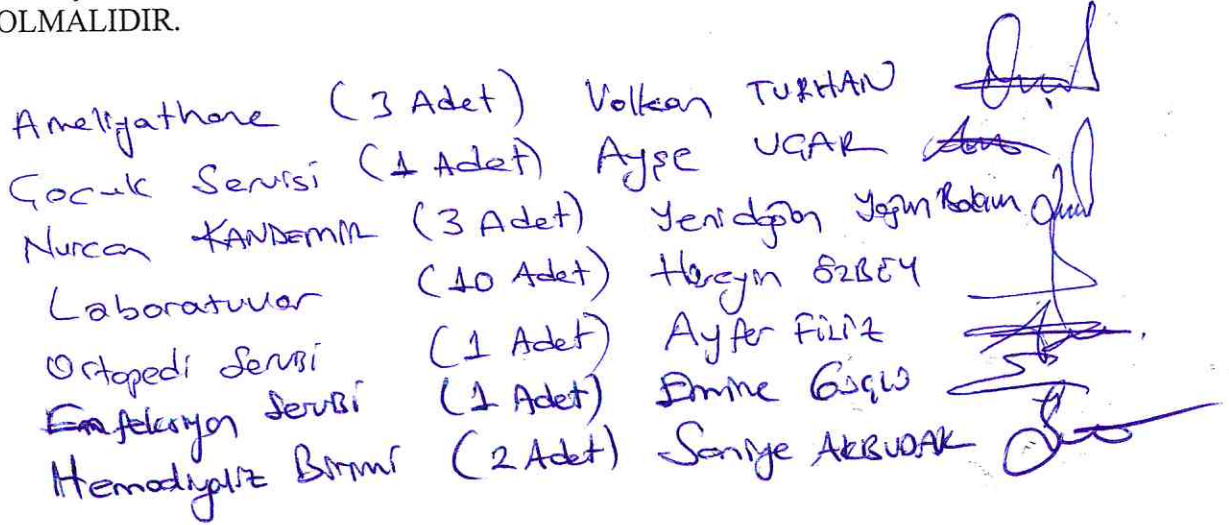 OLMALIDIR.
Ameliyathane (3 Adet) Volkan TURHAN
Çocuk Servisi (1 Adet) Ayşe UÇAR
Nurcan KANDEMİR (3 Adet) Yenidoğan Yoğun Bakım
Laboratuvar (10 Adet) Hüseyin ÖZBEY
Ortopedi Servisi (1 Adet) Ayfer FİLİZ
Enfeksiyon Servisi (1 Adet) Emine
Hemodiyaliz Birimi (2 Adet) Saniye AKBUDAK